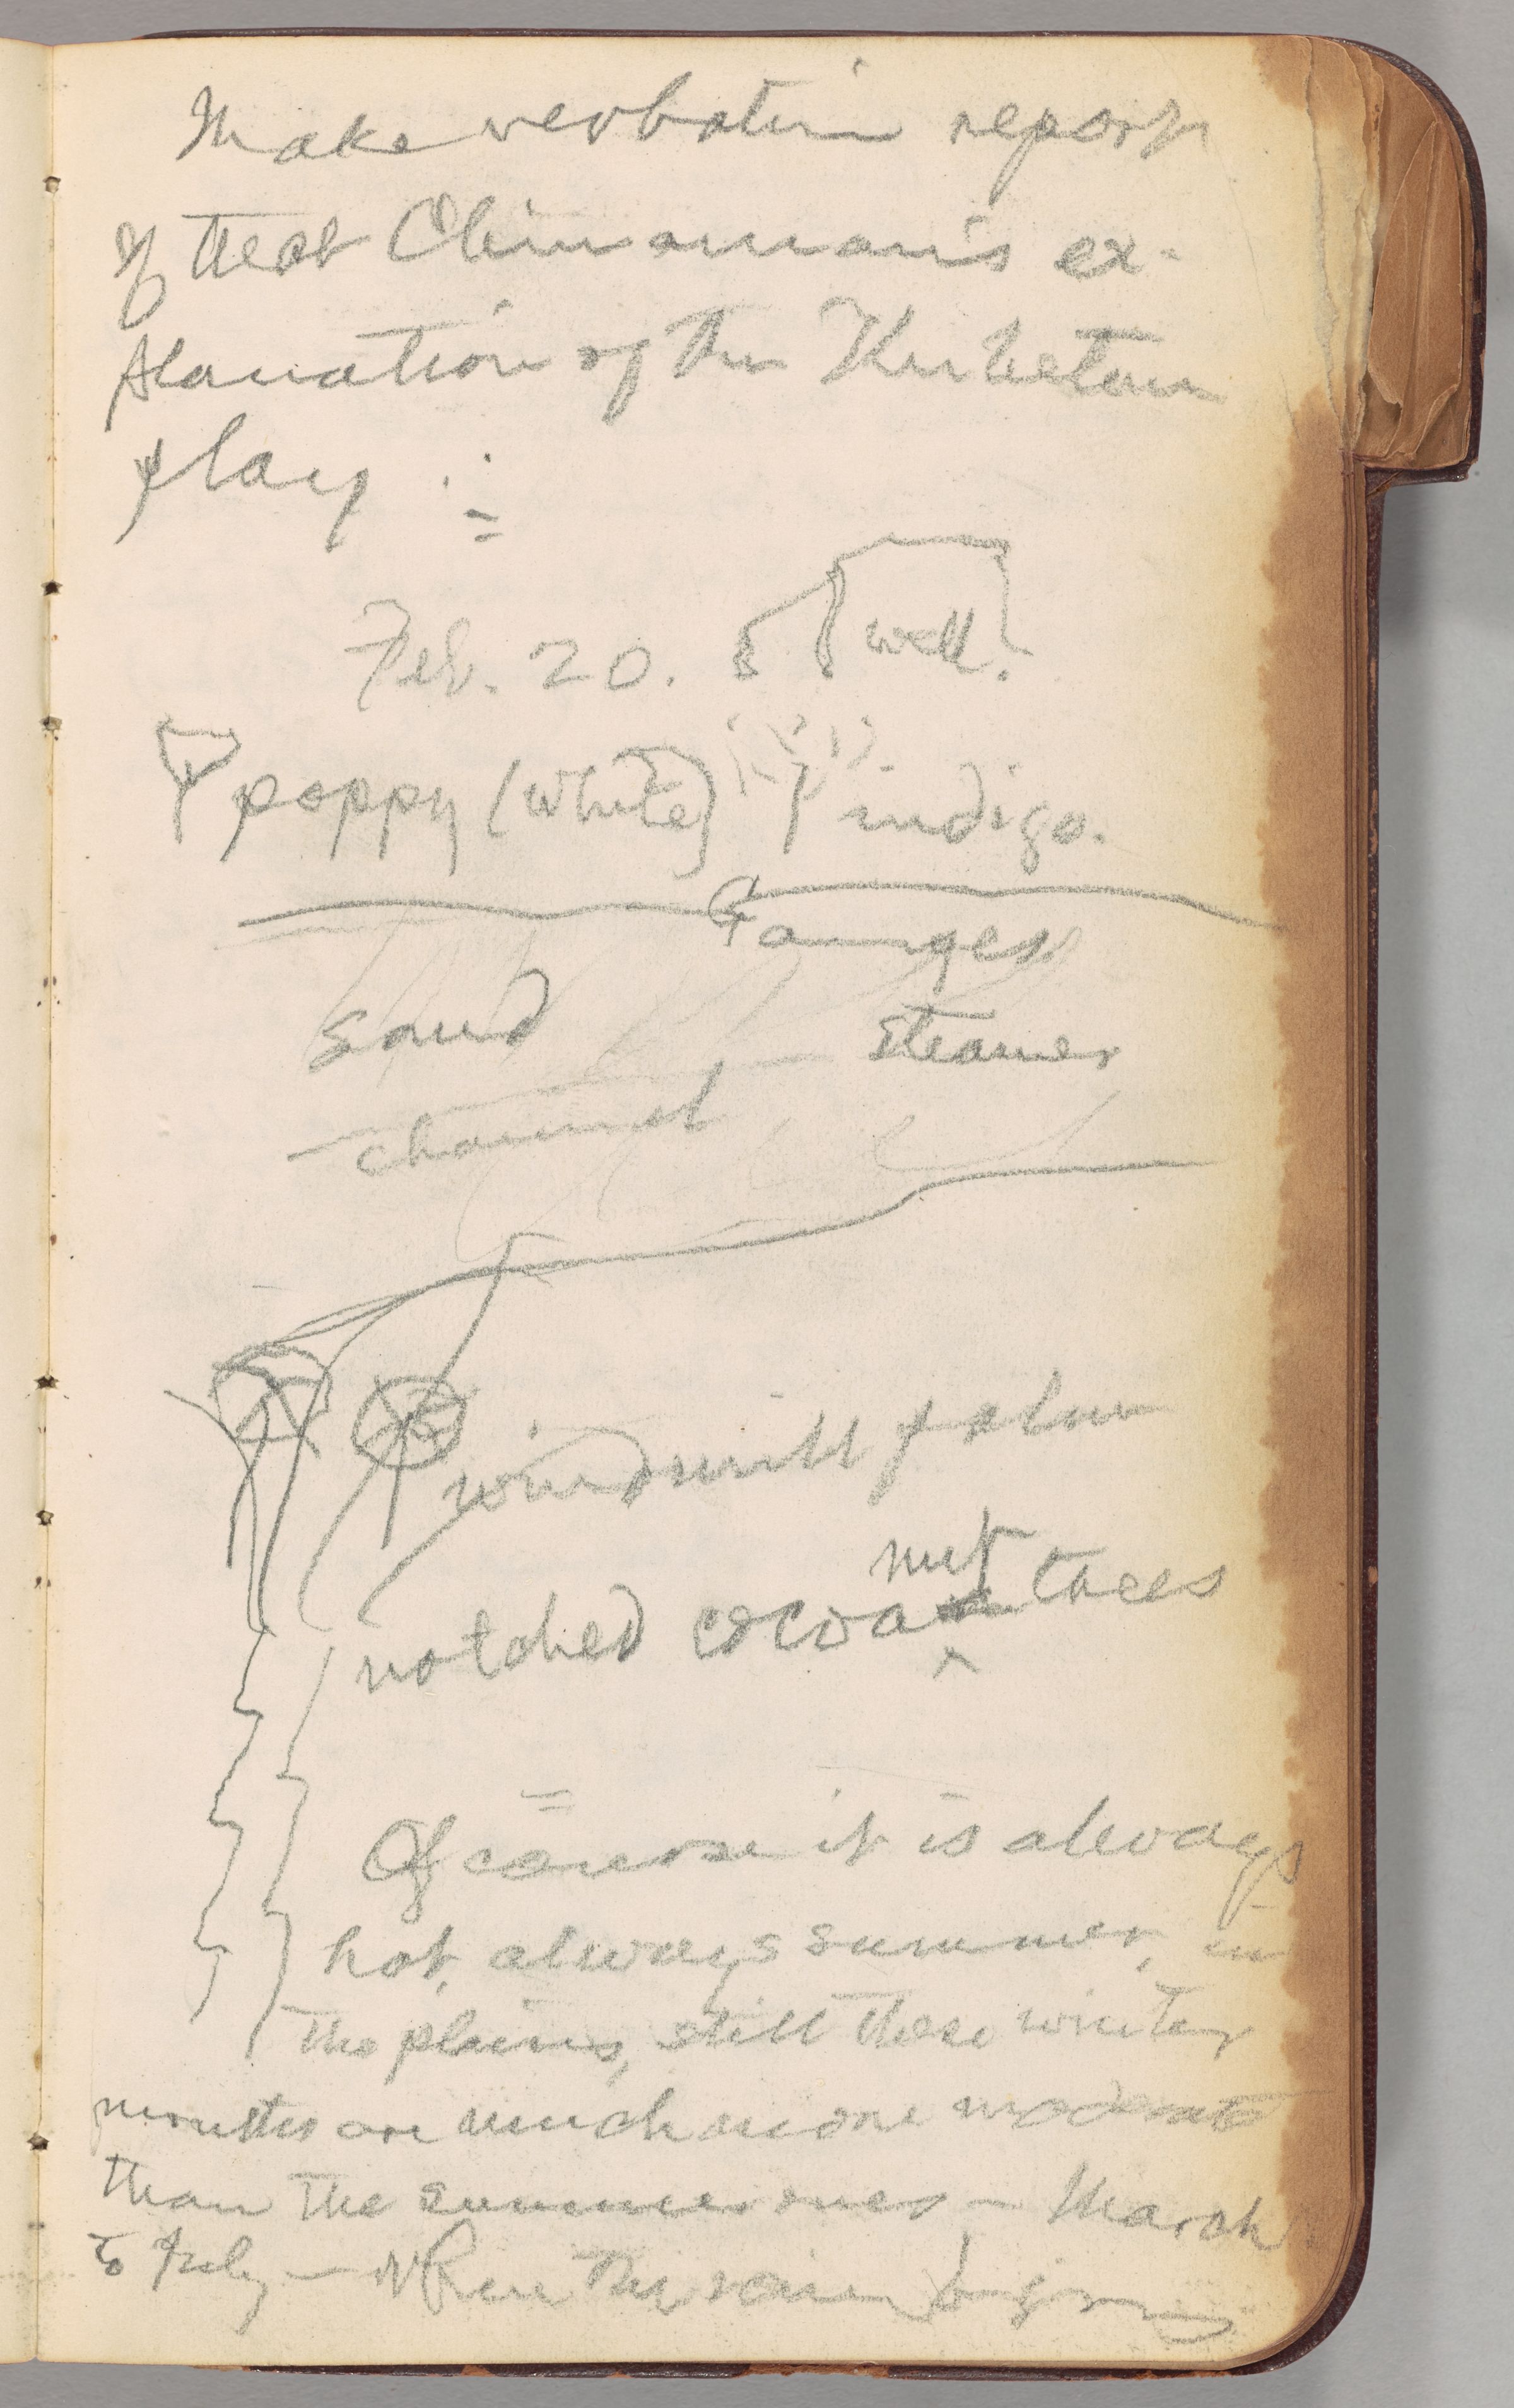 Make verbatim report
of that Chinaman's ex-
planation of the
play :
Feb. 20. well.
poppy (white) indigo.
Ganges
sand steamer
channel
windmill palm
nut
notched cocoa trees
Of course it is always
hot, always summer, in
the plains, still these winter
months are much more moderate
than the summer ones — March
to July — When the rains begin